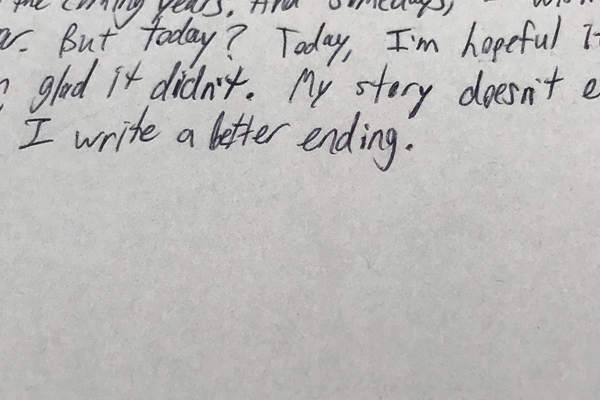 the coming years. And somedays, I
But today? Today, I'm hopeful
glad it didn't. My story doesn't
I write a better ending.